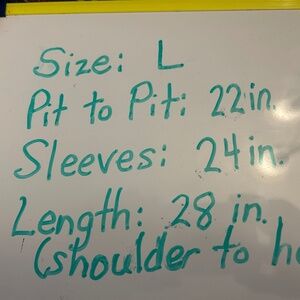 Size: L
Pit to Pit: 22in.
Sleeves: 24in.
Length: 28 in.
(shoulder to